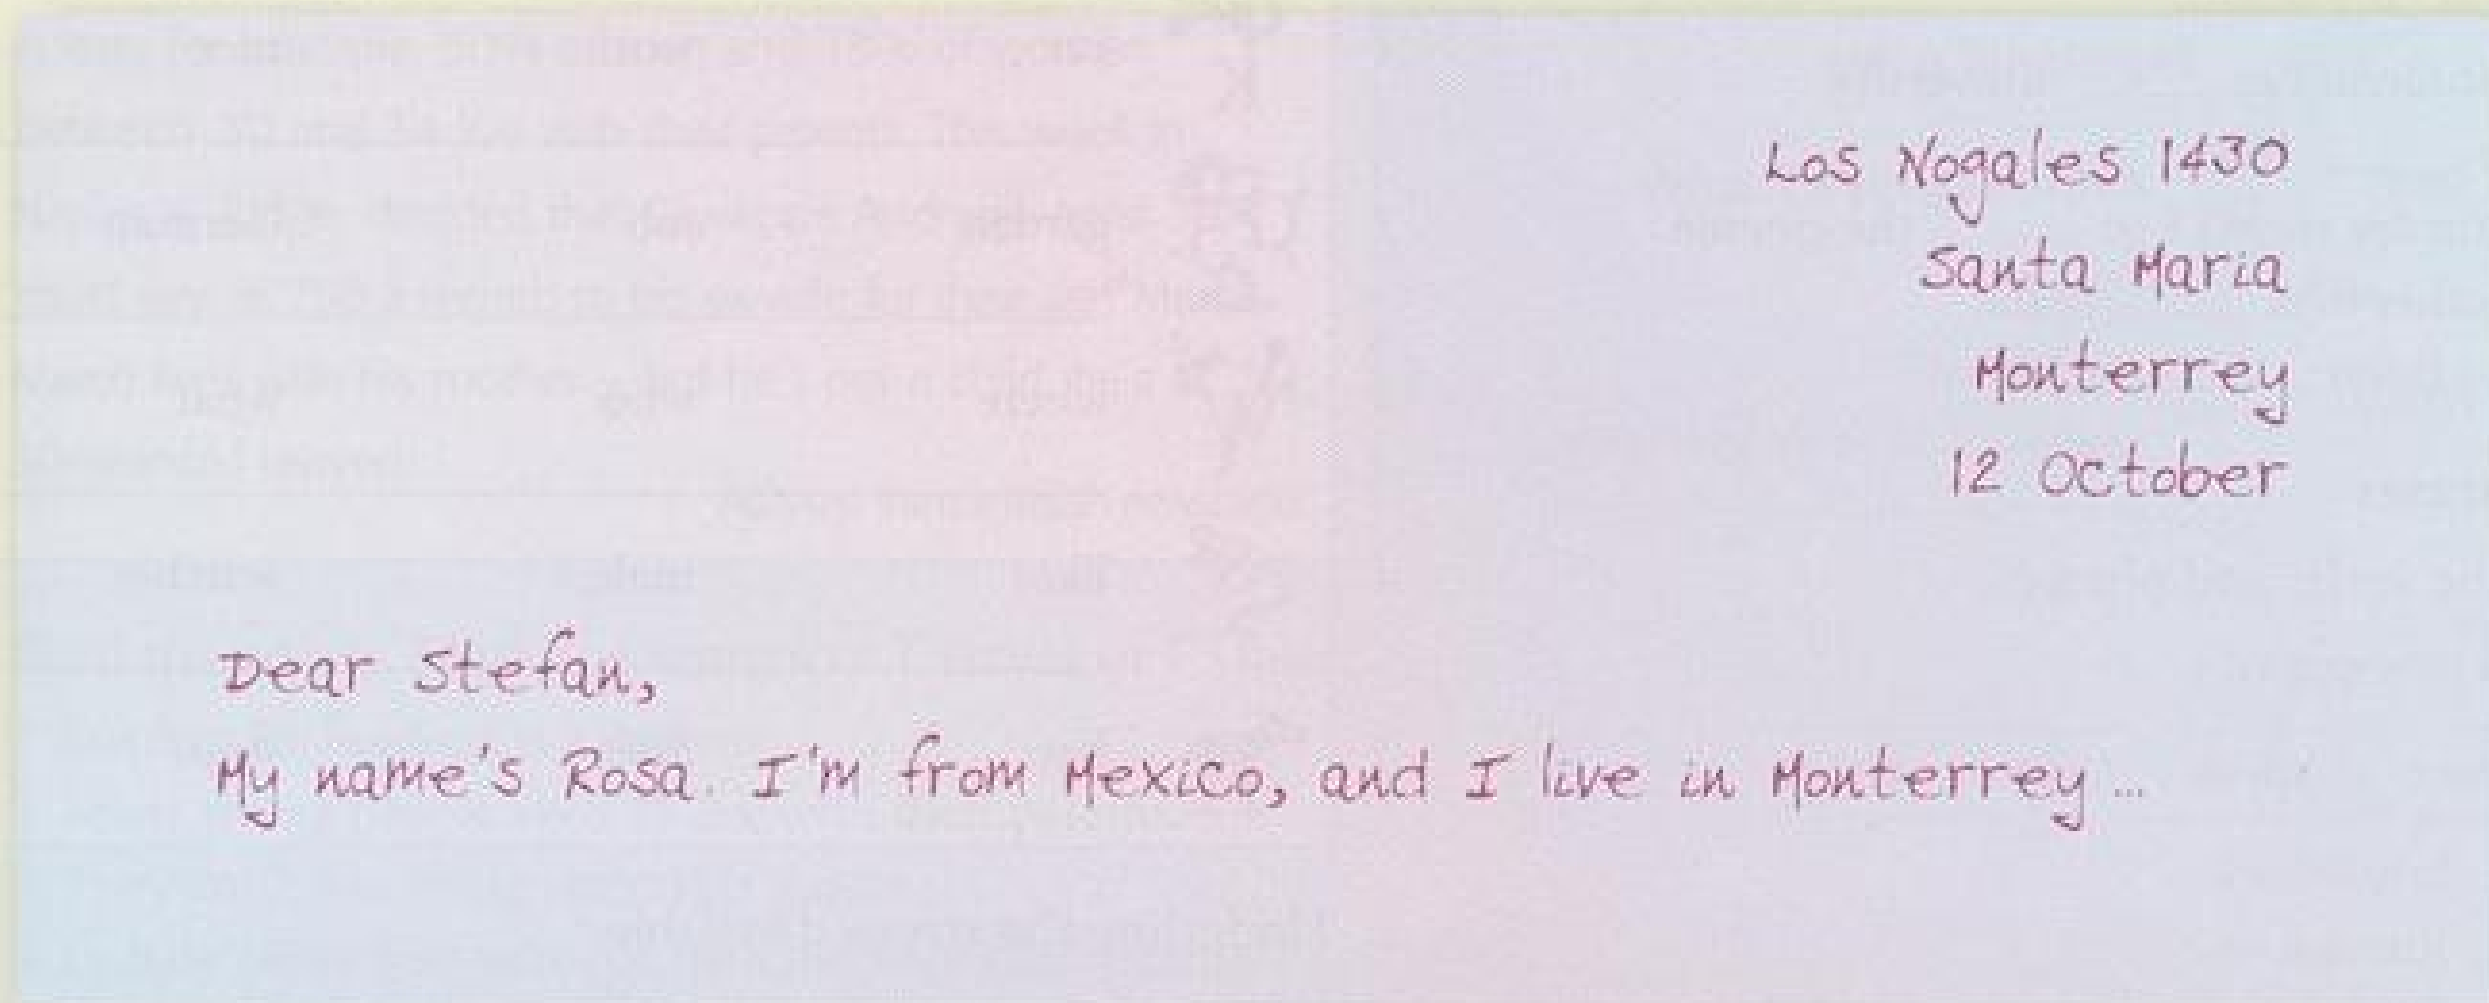 Los Nogales 1430
Santa Maria
Monterrey
12 October
Dear Stefan,
My name's Rosa. I'm from Mexico, and I live in Monterrey...